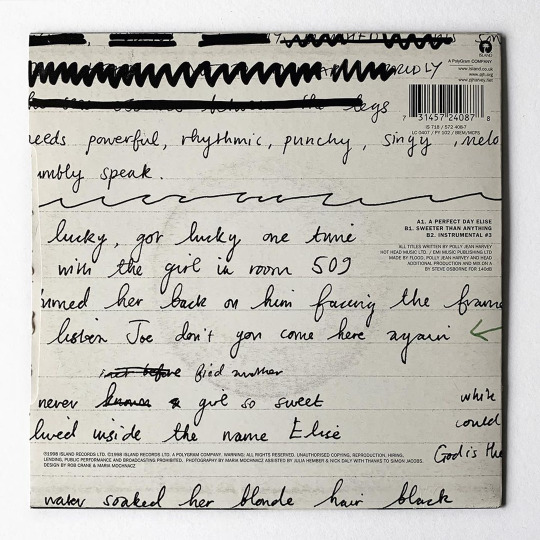 ISLAND
A PolyGram COMPANY
www.island.co.uk
www.pjh.org
www.pjharvey.net
WORDLY
between the legs
7 31457 24087 8
IS 718 / 572 408-7
LC 0407 / PY 102 / BIEM/MCPS
eeds powerful, rhythmic, punchy, singy, melo
umbly speak.
lucky, got lucky one time
with the girl in room 509
urned her back on him facing the frame
listen Joe don't you come here again
just before fied another
never known a girl so sweet
lived inside the name Elise
while
could
God is the
A1. A PERFECT DAY ELISE
B1. SWEETER THAN ANYTHING
B2. INSTRUMENTAL #3
ALL TITLES WRITTEN BY POLLY JEAN HARVEY
HOT HEAD MUSIC LTD. / EMI MUSIC PUBLISHING LTD
MADE BY FLOOD, POLLY JEAN HARVEY AND HEAD
ADDITIONAL PRODUCTION AND MIX ON A
BY STEVE OSBORNE FOR 140dB
©1998 ISLAND RECORDS LTD. ℗1998 ISLAND RECORDS LTD. A POLYGRAM COMPANY. WARNING: ALL RIGHTS RESERVED. UNAUTHORISED COPYING, REPRODUCTION, HIRING,
LENDING, PUBLIC PERFORMANCE AND BROADCASTING PROHIBITED. PHOTOGRAPHY BY MARIA MOCHNACZ ASSISTED BY JULIA HEMBER & NICK DALY WITH THANKS TO SIMON JACOBS.
DESIGN BY ROB CRANE & MARIA MOCHNACZ
water soaked her blonde hair black